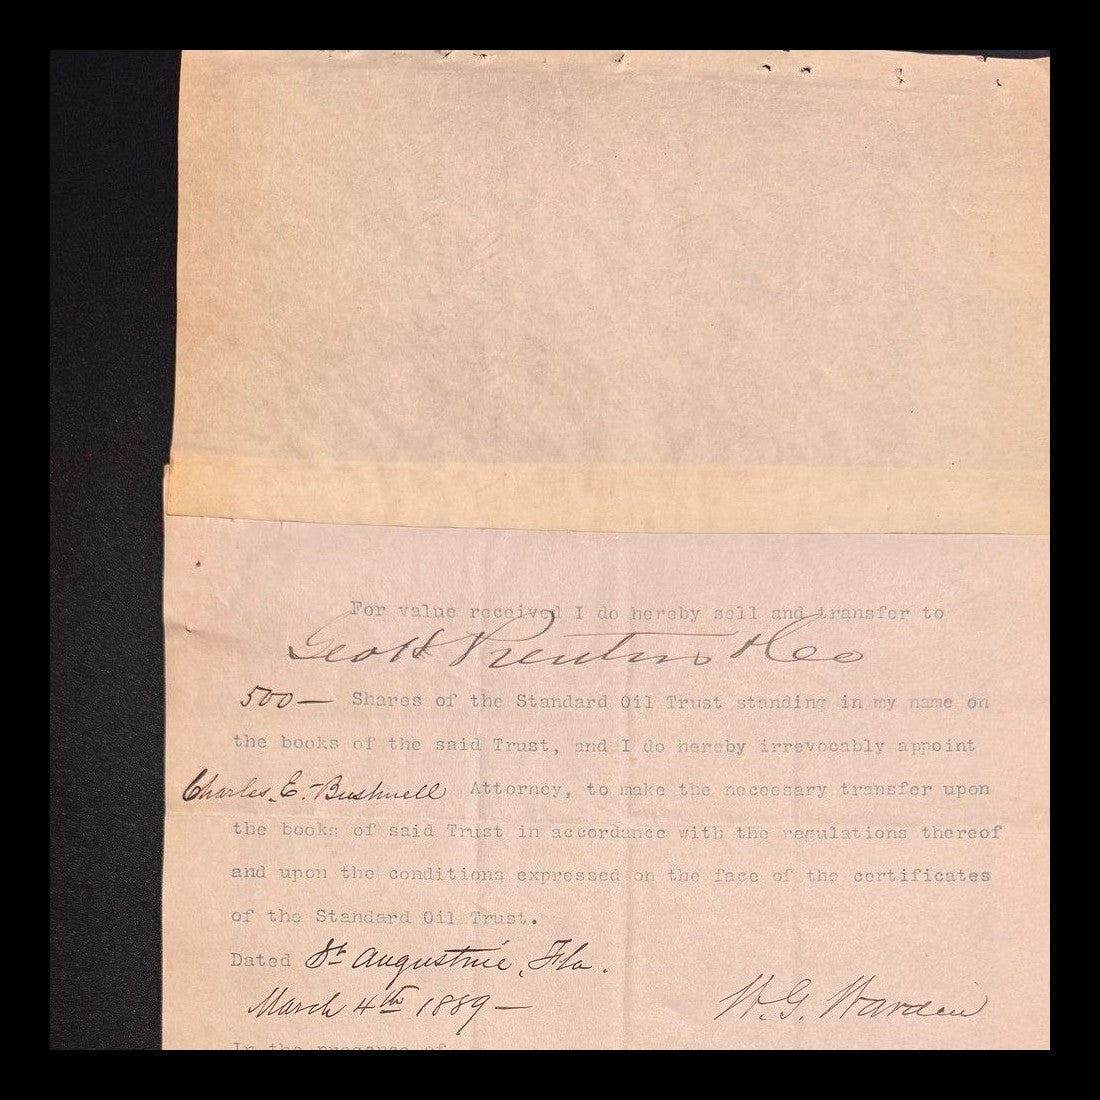 For value received I do hereby sell and transfer to
Geo H Prentiss & Co
500— Shares of the Standard Oil Trust standing in my name on
the books of the said Trust, and I do hereby irrevocably appoint
Charles E. Bushnell Attorney, to make the necessary transfer upon
the books of said Trust in accordance with the regulations thereof
and upon the conditions expressed on the face of the certificates
of the Standard Oil Trust.
Dated St Augustine, Fla.
March 4th 1889— W. G. Warden
In the presence of